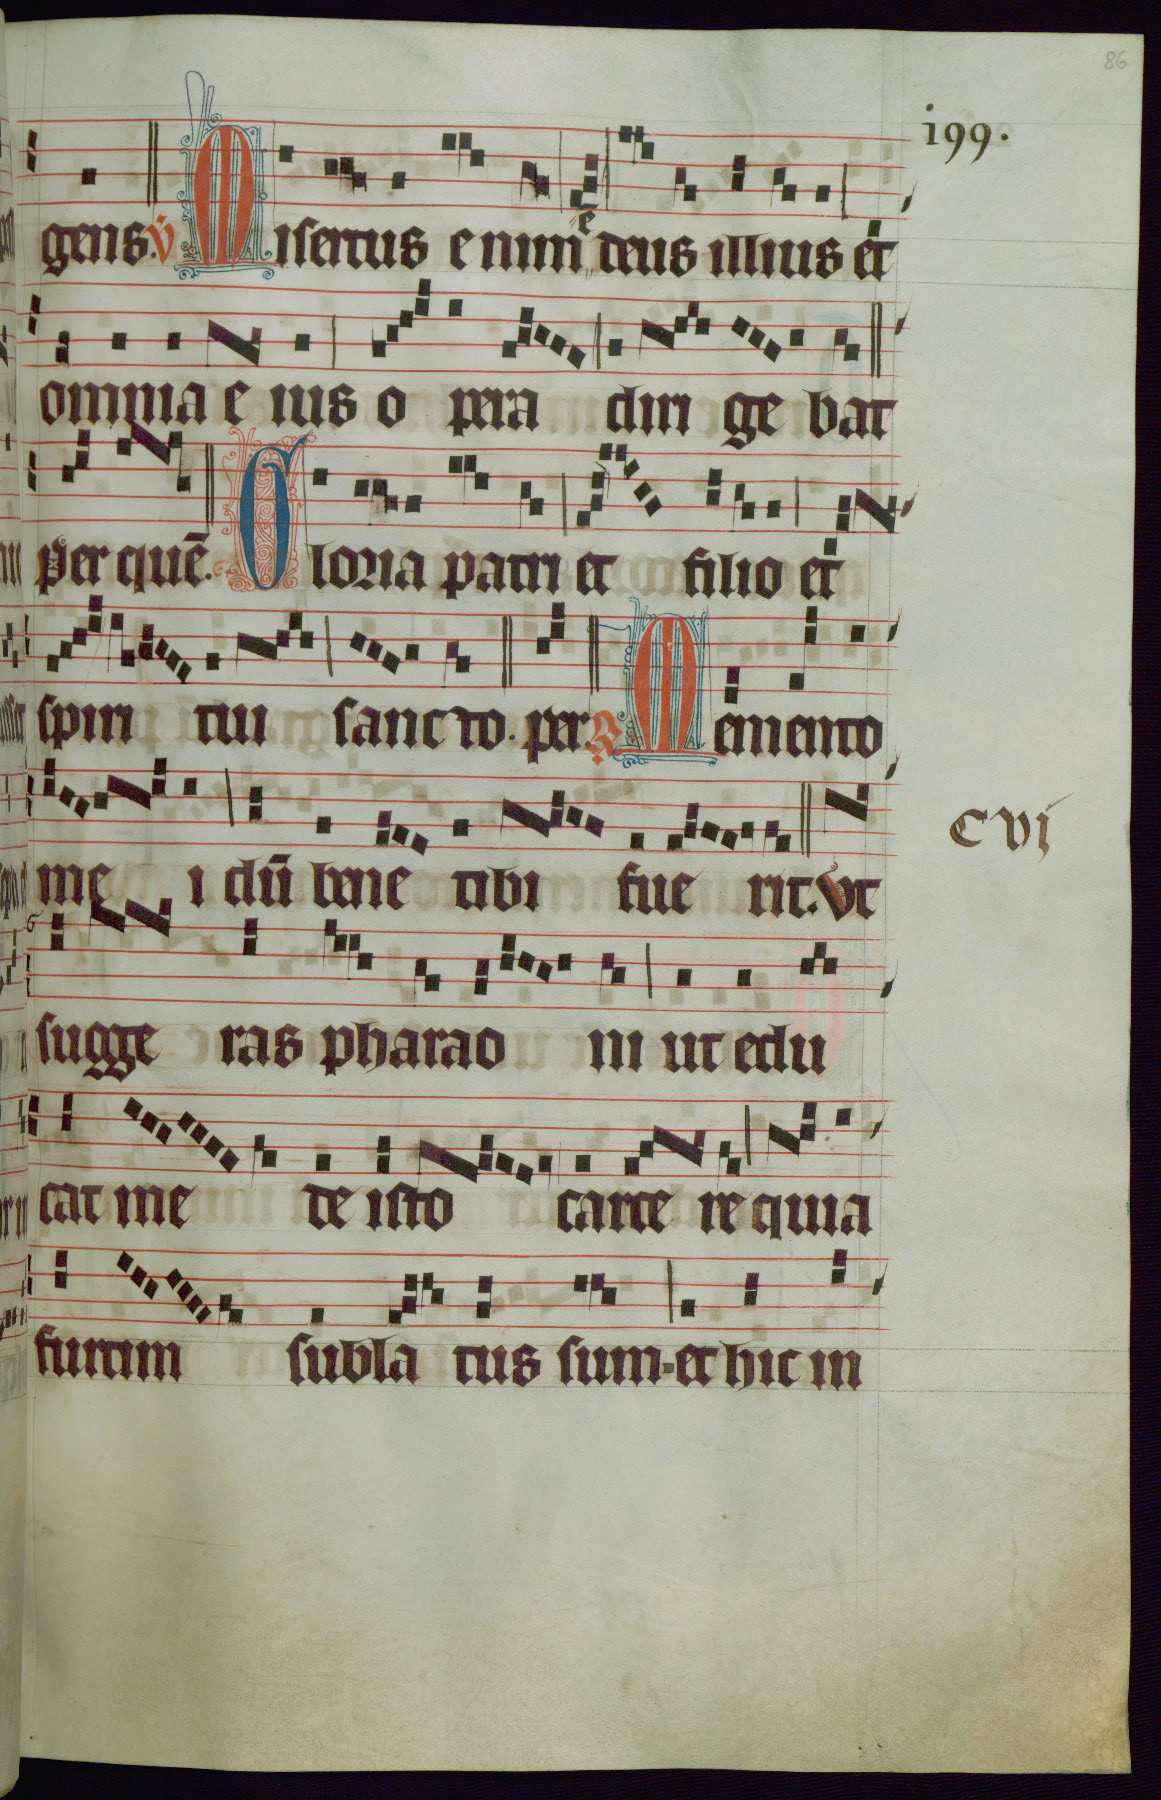 86
i99.
gens. v̄ Misertus enim ē deus illius et
omnia e ius o pera diri ge bat
per quē. Gloria patri et filio et
spiri tui sancto. per. R Memento
me i dū bene tibi fue rit. Vt
cvi
sugge ras pharao ni ut edu
cat me de isto carce re quia
furtim subla tus sum et hic in